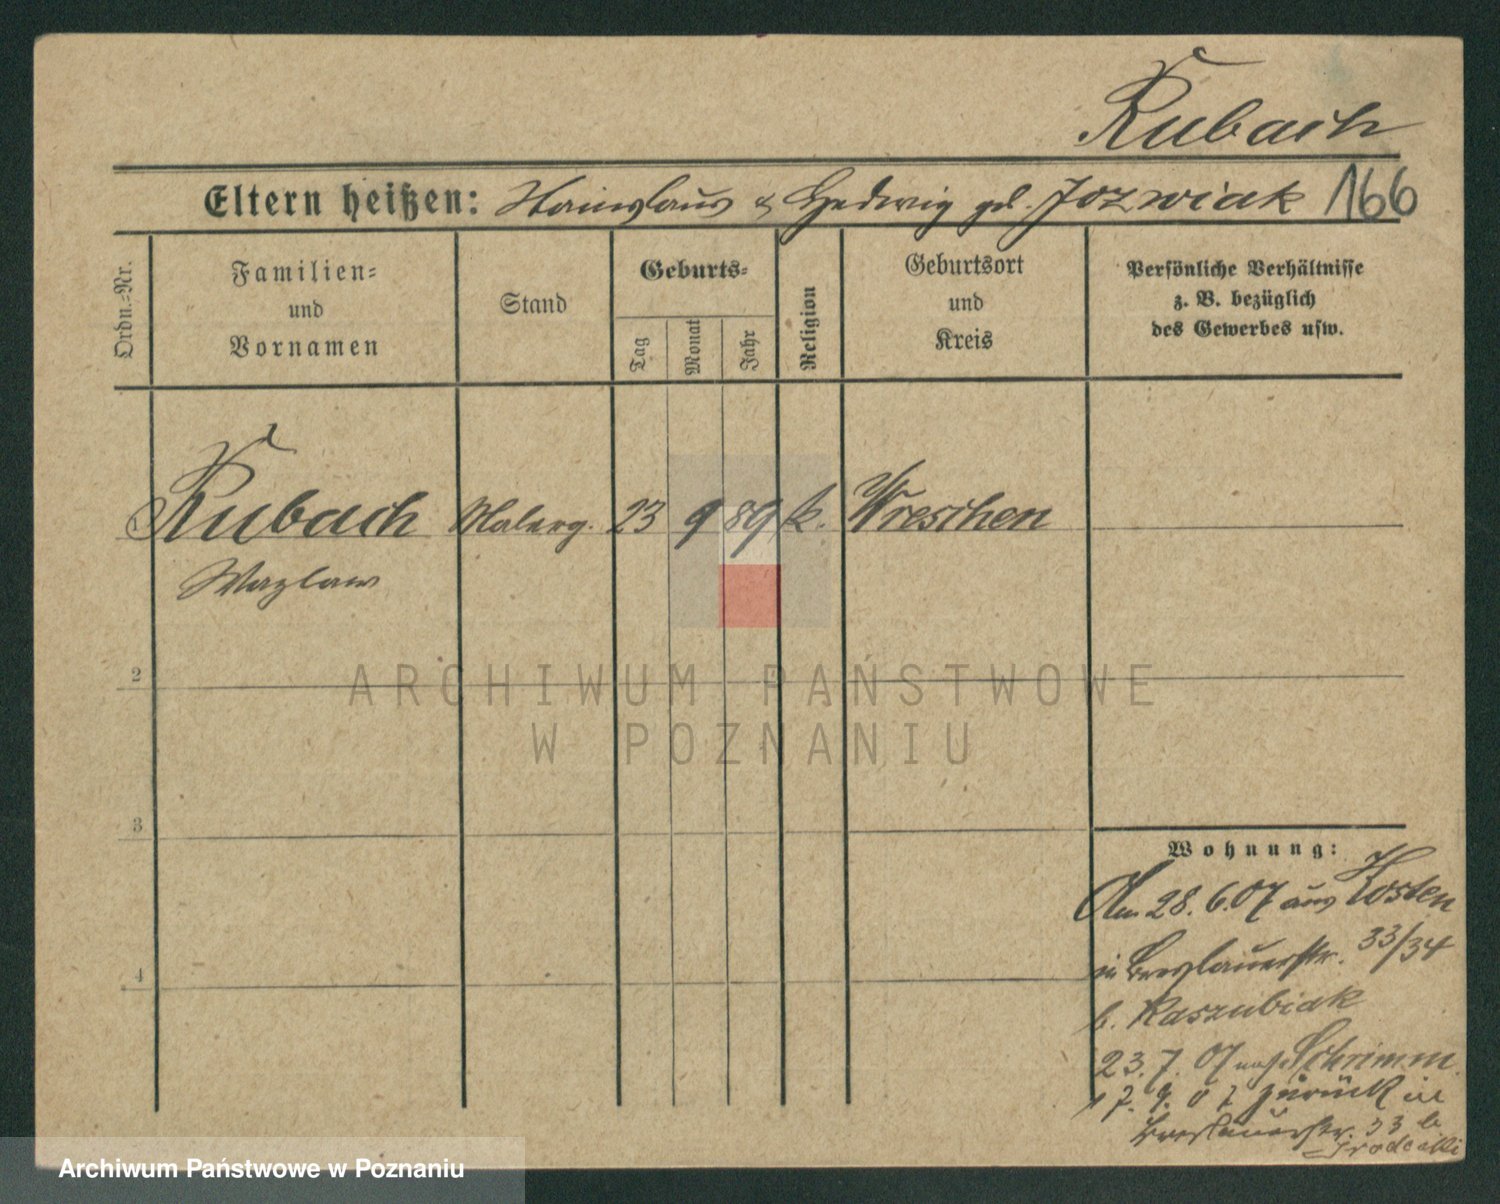 Rubach
Eltern heißen: Stanislaus & Hedwig geb. Jozwiak 166
Ordn.-Nr.
Familien-
und
Vornamen
Stand
Geburts-
Tag
Monat
Jahr
Religion
Geburtsort
und
Kreis
Persönliche Verhältnisse
z. B. bezüglich
des Gewerbes usw.
1 Rubach Malerg. 23 9 89 k. Wreschen
Wazlaw
2
ARCHIWUM PAŃSTWOWE
W POZNANIU
3
Wohnung:
Am 28.6.07 aus Kosten
in Breslauerstr. 33/34
b. Kaszubiak
23.7.07 nach Schrimm
17.9.07 zurück in
Breslauerstr. 33 b
4
Archiwum Państwowe w Poznaniu